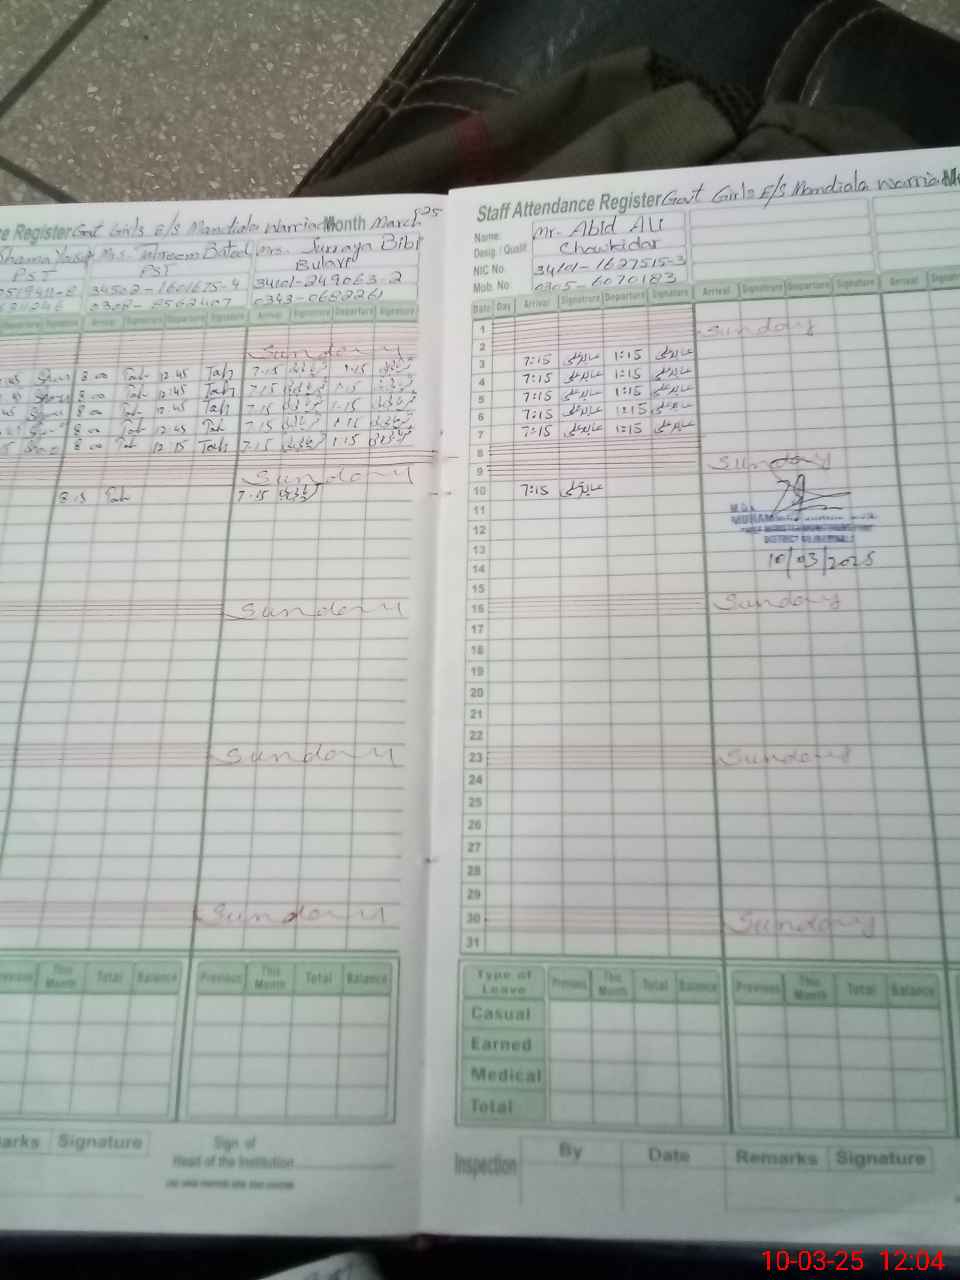 Register Govt Girls E/S Mandiala Warriach Month March 25
Mrs. Batool Mrs. Surraya Bibi
PST PST
34502-1601675-4 34101-249063-2
0343-0682261
Departure Signature Arrival Signature Departure Signature Arrival Signature Departure Signature
Sunday
8:00 Tah 12:45 Tah 7:15 1:15
8:00 Tah 12:45 Tah 7:15 1:15
8:00 Tah 12:45 Tah 7:15 1:15
8:00 Tah 12:45 Tah 7:15 1:15
8:00 Tah 12:15 Tah 7:15 1:15
Sunday
8:15 Tah 7:15
Sunday
Sunday
Sunday
Previous This Month Total Balance Previous This Month Total Balance
Remarks Signature
Sign of
Head of the Institution
Staff Attendance Register Govt Girls E/S Mandiala Warriach
Name: Mr. Abid Ali
Desig / Qualif Chowkidar
NIC No. 34101-1627515-3
Mob. No. 0305-6070183
Date Day Arrival Signature Departure Signature Arrival Signature Departure Signature Arrival Signature
1 Sunday
2
3 7:15 عابد علی 1:15 عابد علی
4 7:15 عابد علی 1:15 عابد علی
5 7:15 عابد علی 1:15 عابد علی
6 7:15 عابد علی 1:15 عابد علی
7 7:15 عابد علی 1:15 عابد علی
8
9 Sunday
10 7:15 عابد علی
11
12
13
14 10/03/2025
15
16 Sunday
17
18
19
20
21
22
23 Sunday
24
25
26
27
28
29
30 Sunday
31
Type of Leave Previous This Month Total Balance Previous This Month Total Balance
Casual
Earned
Medical
Total
Inspection By Date Remarks Signature
10-03-25 12:04